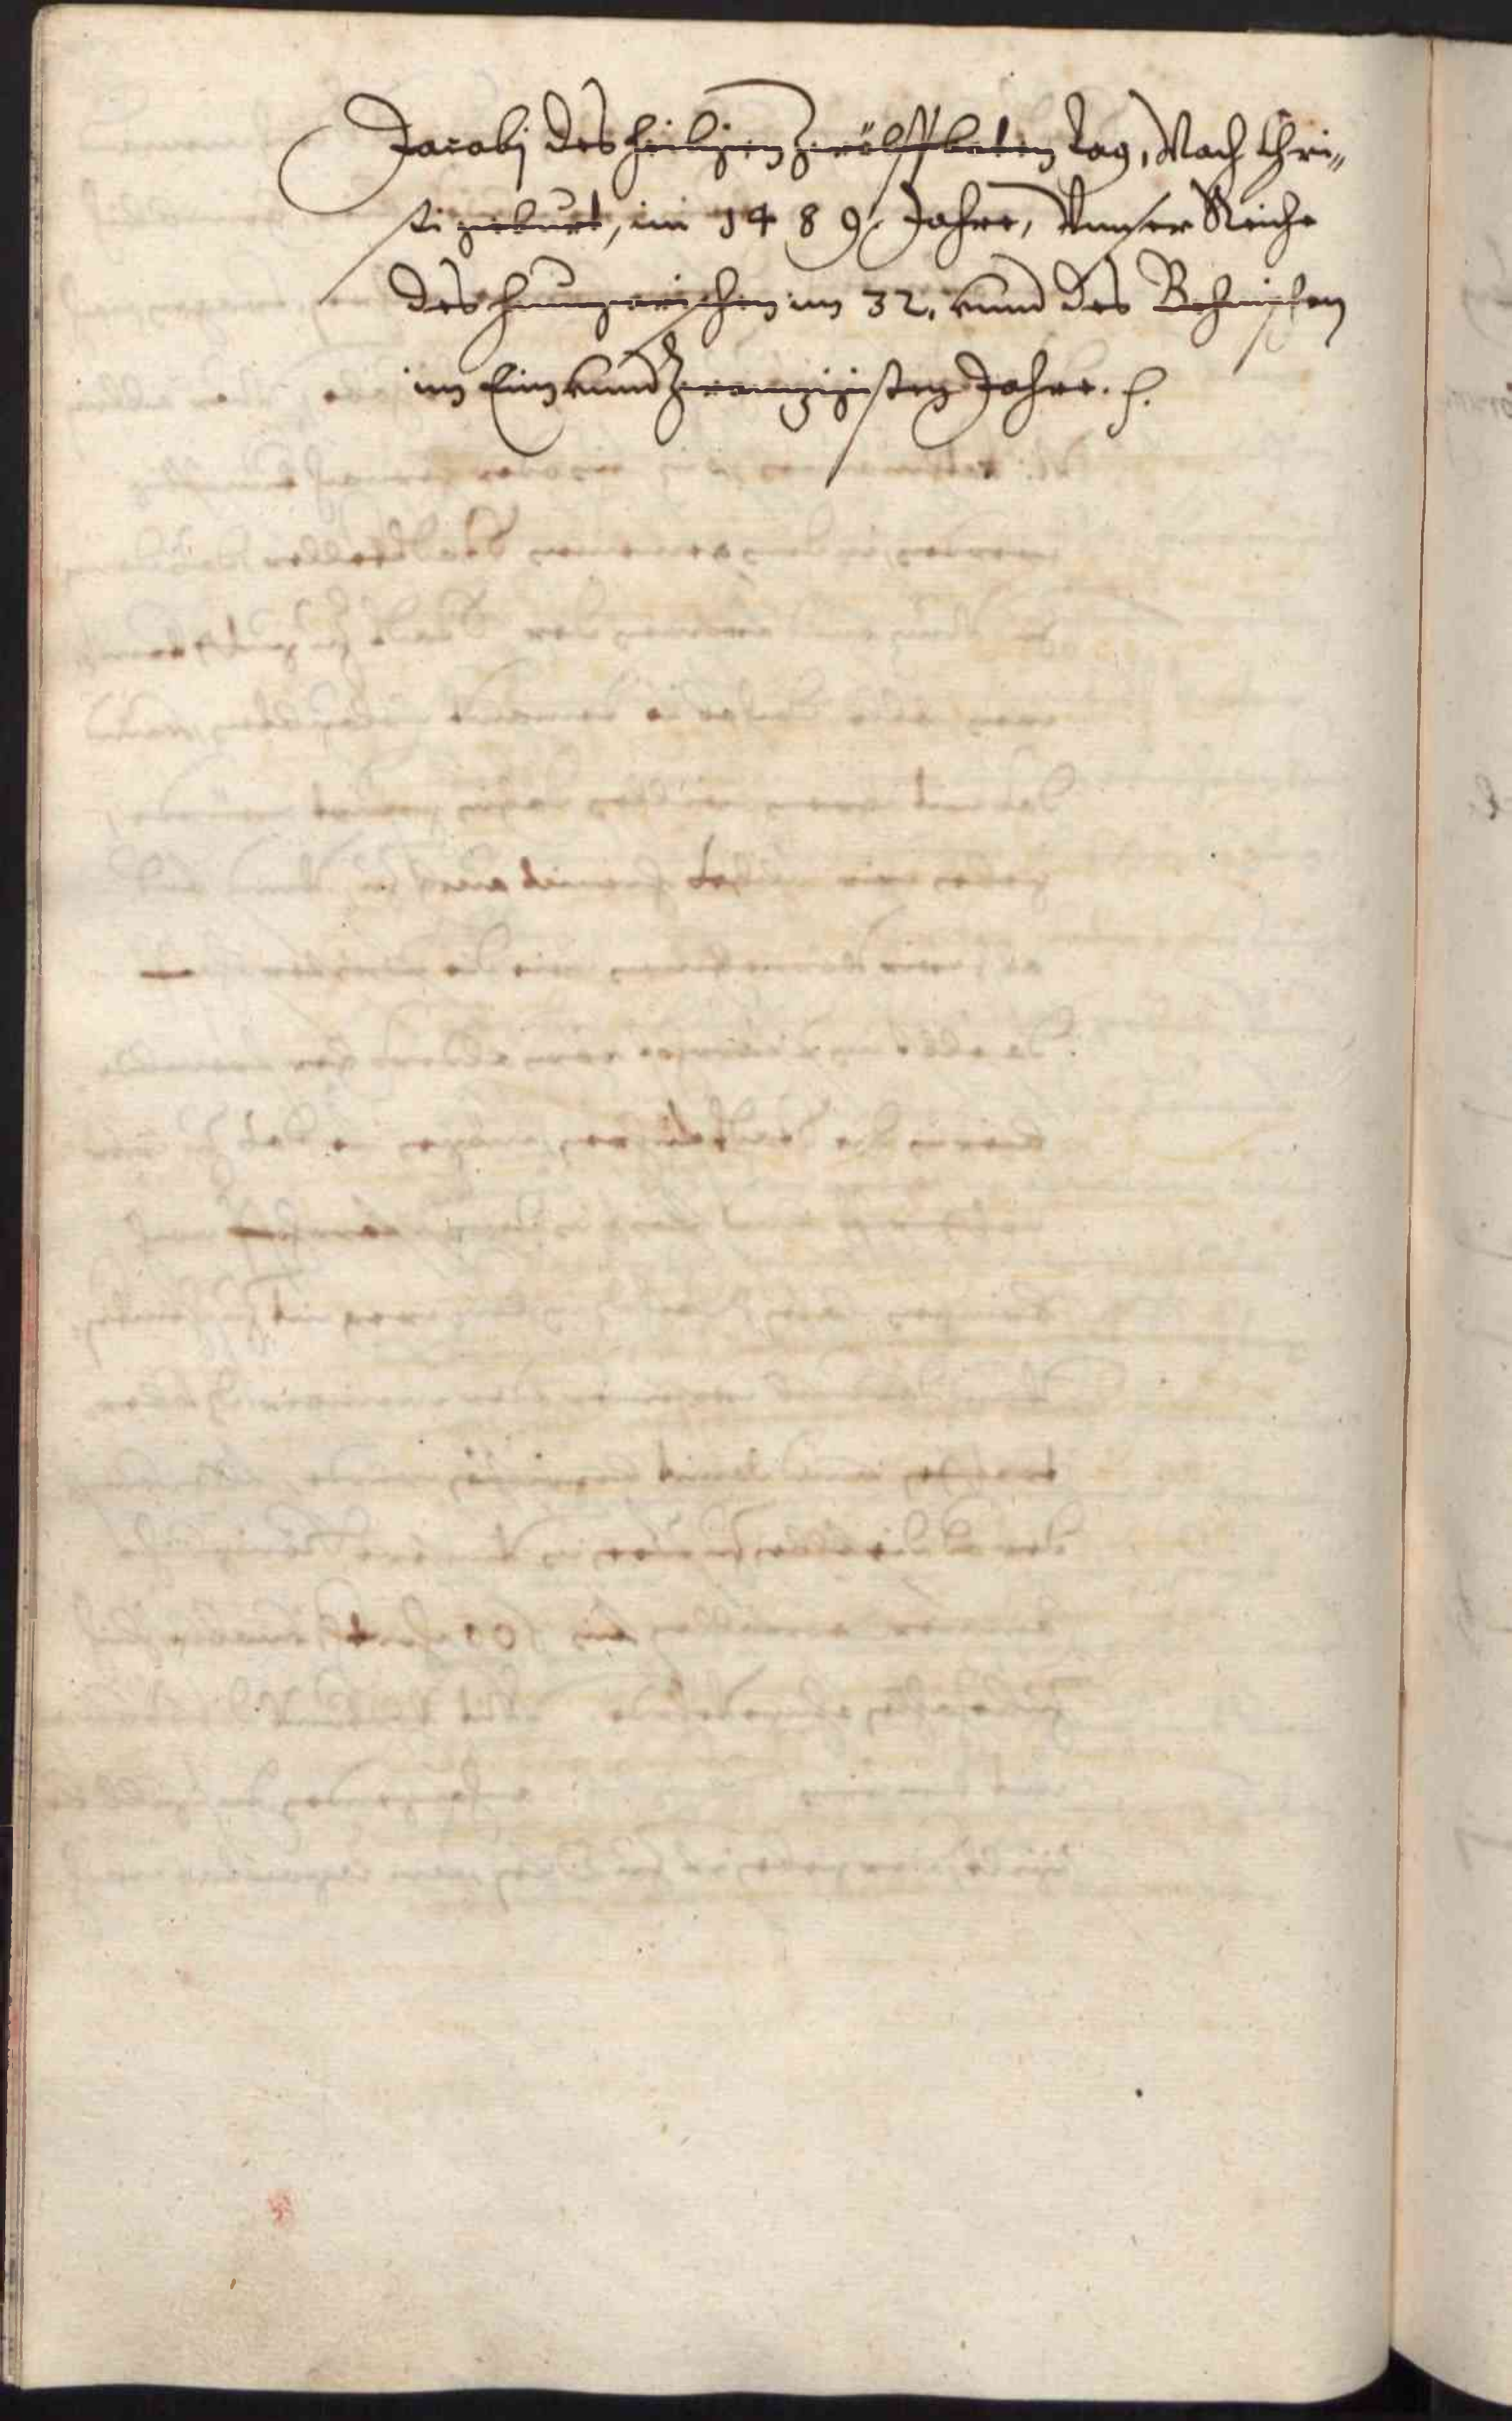 Jacobj des heiligen Zwölffboten tag, Nach Chri„
sti geburt, im 1489. Jahre, Vnnser Reiche
des Hungerischen im 32. vnnd des Behmischen
im Ein vnnd Zwanzigisten Jahre.